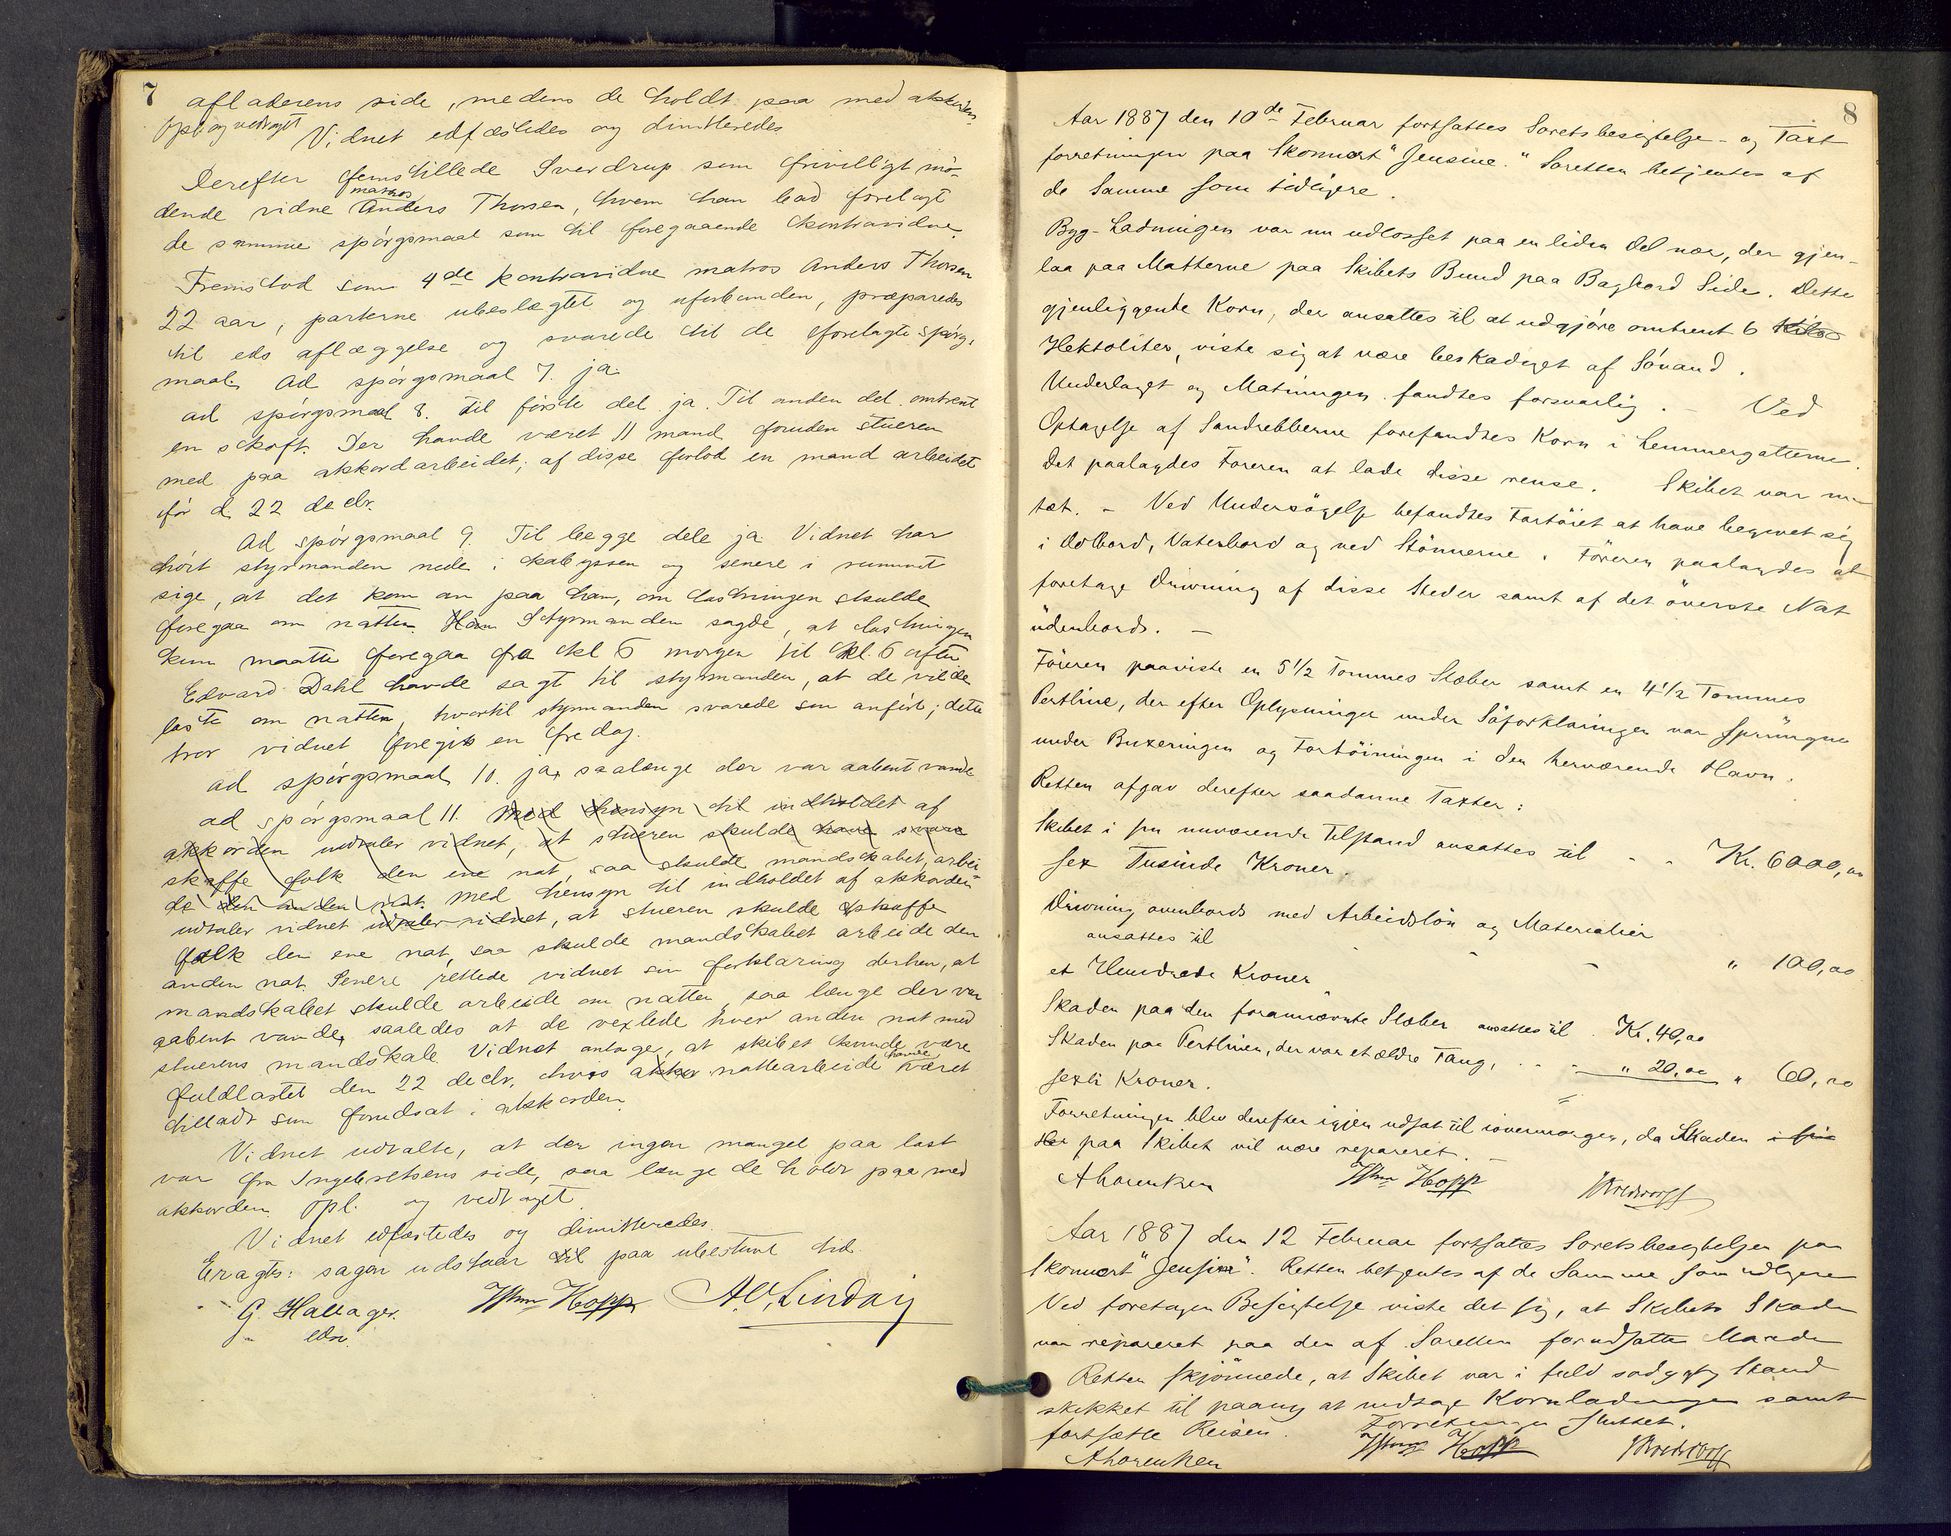 7
afladerens side, medens de holdt paa med akkorden.
Opl. og vedtaget
Vidnet edfæstedes og dimitteredes
Derefter fremstillede Sverdrup som frivilligt mö-
matros
dende vidne Anders Thorsen, hvem han bad forelagt
de samme spörgsmaal som til foregaaende kontravidne.
Fremstod som 4de kontravidne matros Anders Thorsen
22 aar, parterne ubeslægtet og uforbunden, præparedes
til eds aflæggelse og svarede til de forelagte spörgs
maal. Ad spörgsmaal 7. ja
ad spörgsmaal 8. Til förste del ja. Til anden del omtrent
en skoft. Der havde været 11 mand foruden stueren
med paa akkordarbeidet; af disse forlod en mand arbeidet
för d. 22 decbr.
Ad spörgsmaal 9. Til begge dele ja. Vidnet har
hört styrmanden nede i kabyssen og senere i rummet
sige, at det kom an paa ham, om lastningen skulde
foregaa om natten. Ham Styrmanden sagde, at lastningen
kun maatte foregaa fra kl 6 morgen til kl. 6 aften
Edvard Dahl havde sagt til styrmanden, at de vilde
laste om natten, hvortil styrmanden svarede som anfört; dette
tror vidnet foregik en fredag.
ad spörgsmaal 10. ja, saalænge der var aabent vande
ad spörgsmaal 11. Med hensyn til indholdet af
akkorden udtaler vidnet, at stueren skulde have svare
skaffe folk den ene nat, saa skulde mandskabet arbei-
de den anden nat. Med hensyn til indholdet af akkorden
udtaler vidnet udtaler vidnet, at stueren skulde skaffe
folk den ene nat, saa skulde mandskabet arbeide den
anden nat. Senere rettede vidnet sin forklaring derhen, at
mandskabet skulde arbeide om natten, saa længe der var
aabent vande, saaledes at de vexlede hver anden nat med
stuerens mandskab. Vidnet antager, at skibet kunde være
fuldlastet den 22 decbr, hvis nattearbeide havde været
tilladt som forudsat i akkorden.
Vidnet udtalte, at der ingen mangel paa last
var fra Ingebretsens side, saa længe de holdt paa med
akkorden. Opl. og vedtaget
Vidnet edfæstedes og dimitteredes.
Eragtes: sagen udstaar til paa ubestemt tid.
G. Hallager. Wm Hopp A. V. Lindøy
8
Aar 1887 den 10de Februar fortsattes Søretsbesigtelse- og Taxt
forretningen paa Skonnert "Jensine." Søretten betjentes af
de Samme som tidligere.
Byg-Ladningen var nu udlosset paa en liden Del nær, der gjen-
laa paa Matterne paa Skibets Bund paa Bagbord Side. Dette
gjenliggende Korn, der ansattes til at udgjöre omtrent 6 Kilos
Hektoliter, viste sig at være beskadiget af Sövand.
Underlaget og Matningen fandtes forsvarlig. – Ved
Optagelse af Sandsebberne forefandtes Korn i Lemmergatterne.
Det paalagdes Föreren at lade disse rense. Skibet var nu
tæt. – Ved Undersögelse befandtes Fartöiet at have begivet sig
i Dolbord, Vaterbord og ved Stönnerne. Föreren paalagdes at
foretage Drivning af disse Steder samt af det överste Nat
udenbords. –
Föreren paaviste en 5 1/2 Tommes Slæber samt en 4 1/2 Tommes
Pertline, der efter Oplysninger under Söforklaringen var sprungne
under Buxeringen og Fortöiningen i den herværende Havn.
Retten afgav derefter saadanne Taxter:
Skibet i sin nuværende Tilstand ansattes til - - Kr. 6000,00
sex Tusinde Kroner.
Drivning ovenbords med Arbeidslön og Materialier
ansattes til - - " 100,00
et Hundrede Kroner
Skaden paa den forannævnte Slæber ansattes til . Kr. 40,00
Skaden paa Pertlinen, der var et ældre Toug, . . - " 20,00 " 60,00
sexti Kroner.
Forretningen blev derefter igjen udsat til iovermorgen, da Skaden
paa Skibet vil være repareret. –
A Lorentzen Wm Hopp
Aar 1887 den 12 Februar fortsattes Søretsbesigtelsen paa
Skonnert "Jensine". Retten betjentes af de Samme som tidligere
Ved foretagen Besigtelse viste det sig, at Skibets Skade
var repareret paa den af Søretten forudsatte Maade
Retten skjönnede, at Skibet var i fuld södygtig Stand
skikket til paany at indtage Kornladningen samt
fortsætte Reisen. Forretningen sluttet.
A Lorentzen Wm Hopp